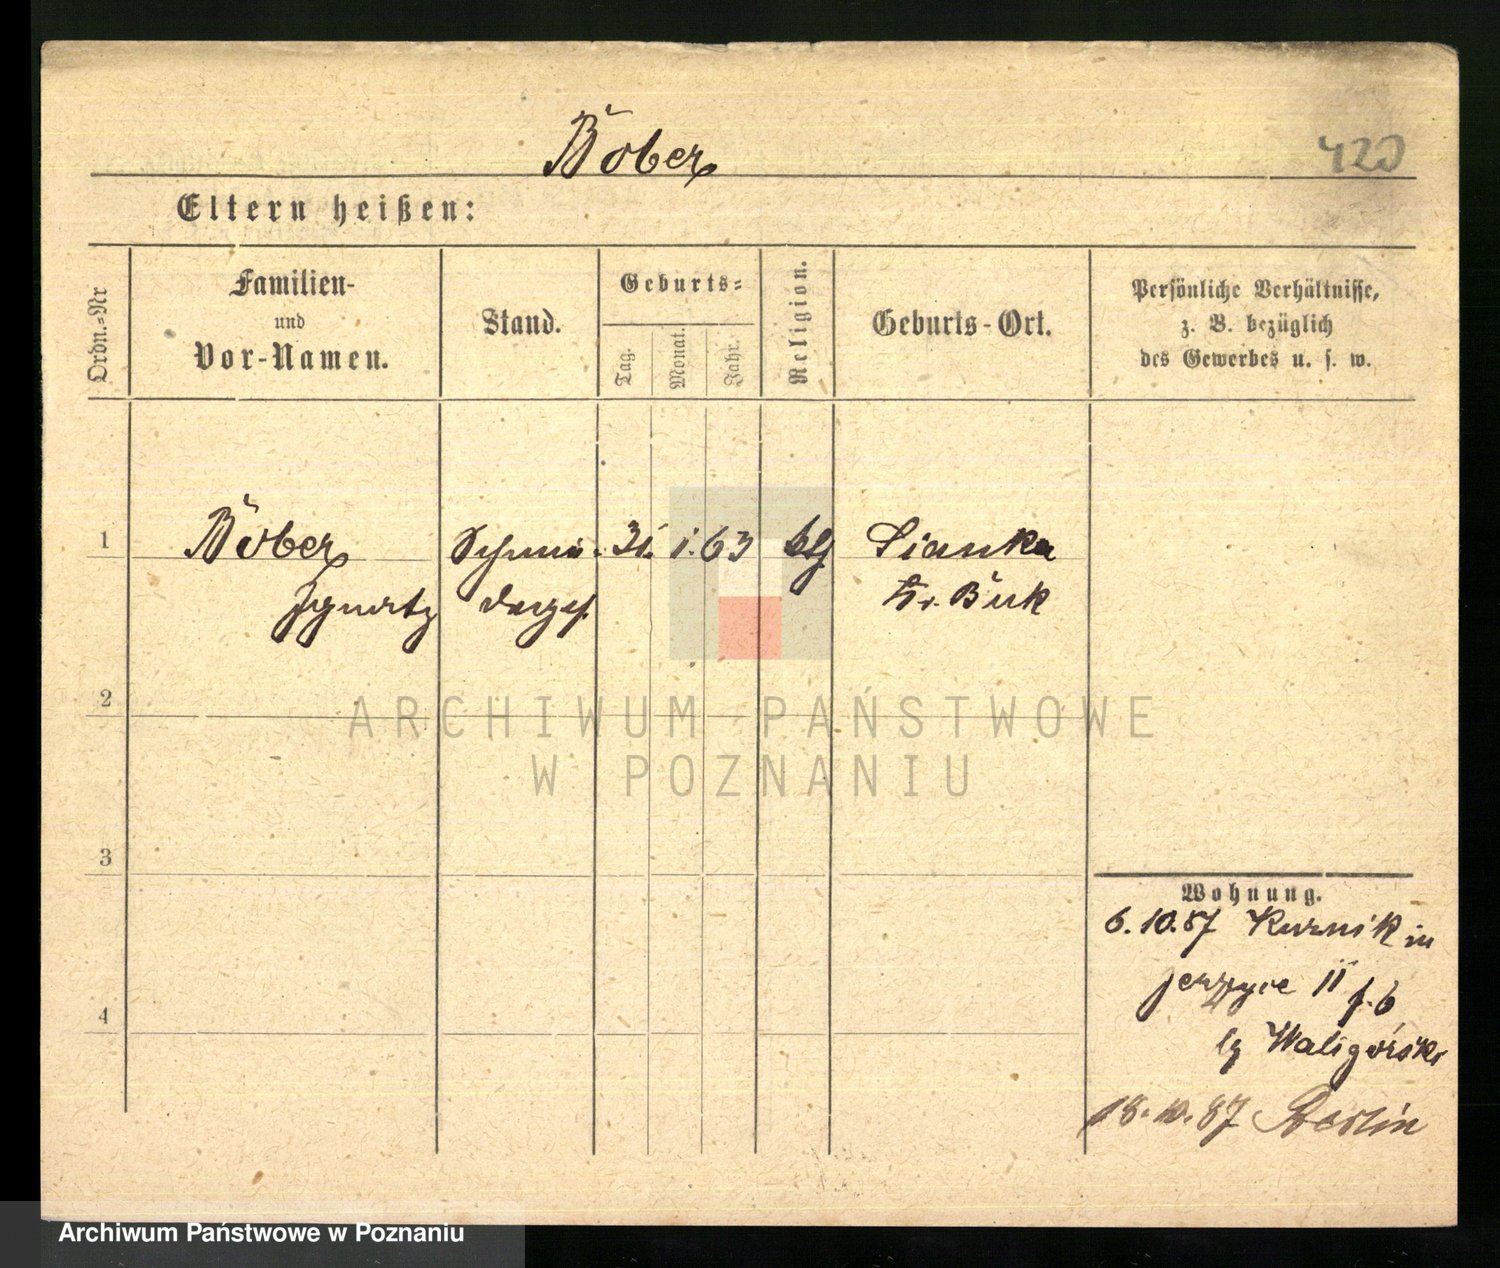 Bober
420
Eltern heißen:
Ordn.-Nr
Familien-
und
Vor-Namen.
Stand.
Geburts-
Tag.
Monat.
Jahr.
Religion.
Geburts-Ort.
Persönliche Verhältnisse,
z. B. bezüglich
des Gewerbes u. s. w.
1
Bober
Ignatz
Schmie-
degs.
31. 1. 63
Sianka
Kr. Buk
2
3
4
Wohnung.
6.10.87 Kurnik in
II
Waligórski
18.10.87 Berlin
ARCHIWUM PAŃSTWOWE
W POZNANIU
Archiwum Państwowe w Poznaniu